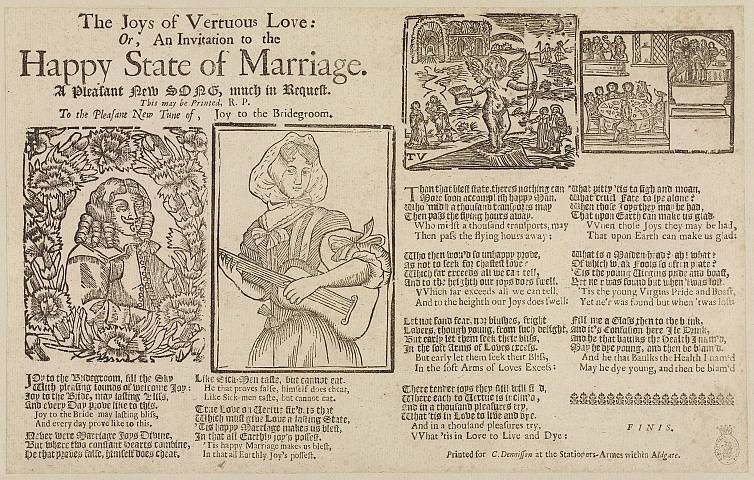 The Joys of Vertuous Love:
Or, An Invitation to the
Happy State of Marriage.
A Pleasant New SONG, much in Request.
This may be Printed, R. P.
To the Pleasant New Tune of, Joy to the Bridegroom.
TV
JOy to the Bridegroom, fill the Sky
With pleasing sounds of welcome Joy:
Joy to the Bride, may lasting Bliss,
And every Day prove like to this.
Joy to the Bride may lasting bliss,
And every day prove like to this.
Never were Marriage Joys Divine,
But where two constant hearts combine,
He that proves false, himself does cheat,
Like Sick-Men taste, but cannot eat.
He that proves false, himself does cheat,
Like Sick-men taste, but cannot eat.
True Love on Vertue fix'd, is that
Which must give Love a lasting State,
'Tis happy Marriage makes us blest,
In that all Earthly joy's possest.
'Tis happy Marriage makes us blest,
In that all Earthly Joy's possest.
Than that blest state, theres nothing can
More soon accomplish happy Man,
Who 'midst a thousand transports may
Then pass the flying hours away.
Who midst a thousand transports, may
Then pass the flying hours away:
Who then wou'd so unhappy prove,
as not to seek for chastest love?
Which far exceeds all we can tell,
And to the heighth our joys does swell.
VVhich far exceeds all we can tell,
And to the heighth our Joys does swell:
Let not fond fear, nor blushes, fright
Lovers, though young, from such delight,
But early let them seek their bliss,
In the soft Arms of Loves excess.
But early let them seek their Bliss,
In the soft Arms of Loves Excess:
There tender joys they still will find,
Where each to Vertue is inclin'd,
And in a thousand pleasures try,
What 'tis in Love to live and dye.
And in a thousand pleasures try.
VVhat 'tis in Love to Live and Dye:
What pitty 'tis to sigh and moan,
What cruel Fate to lye alone?
When those Joys they may be had,
That upon Earth can make us glad.
VVhen those Joys they may be had,
That upon Earth can make us glad:
What is a Maiden-head? ah! what?
Of which Fools so often prate?
'Tis the young Virgins pride and boast,
Yet ne'r was found but when 'twas lost.
'Tis the young Virgins Pride and Boast,
Yet ne'r was found but when 'twas lost:
Fill me a Glass then to the brink,
and it's Confusion here Ile Drink,
And he that baulks the Health I nam'd,
May he dye young, and then be blam'd.
And he that Baulks the Health I nam'd
May he dye young, and then be blam'd
FINIS.
Printed for C. Dennisson at the Stationers-Armes within Aldgate.